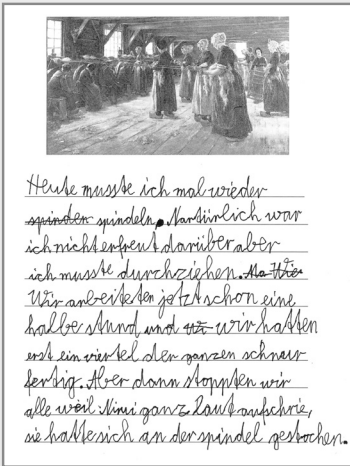 Heute musste ich mal wieder
spinden spindeln. Nartürlich war
ich nicht erfreut darüber aber
ich musste durchziehen.
Wir arbeiteten jetzt schon eine
halbe stund und wir hatten
erst ein viertel der ganzen schnur
fertig. Aber dann stoppten wir
alle weil Nini ganz laut aufschrie,
sie hatte sich an der spindel gestochen.